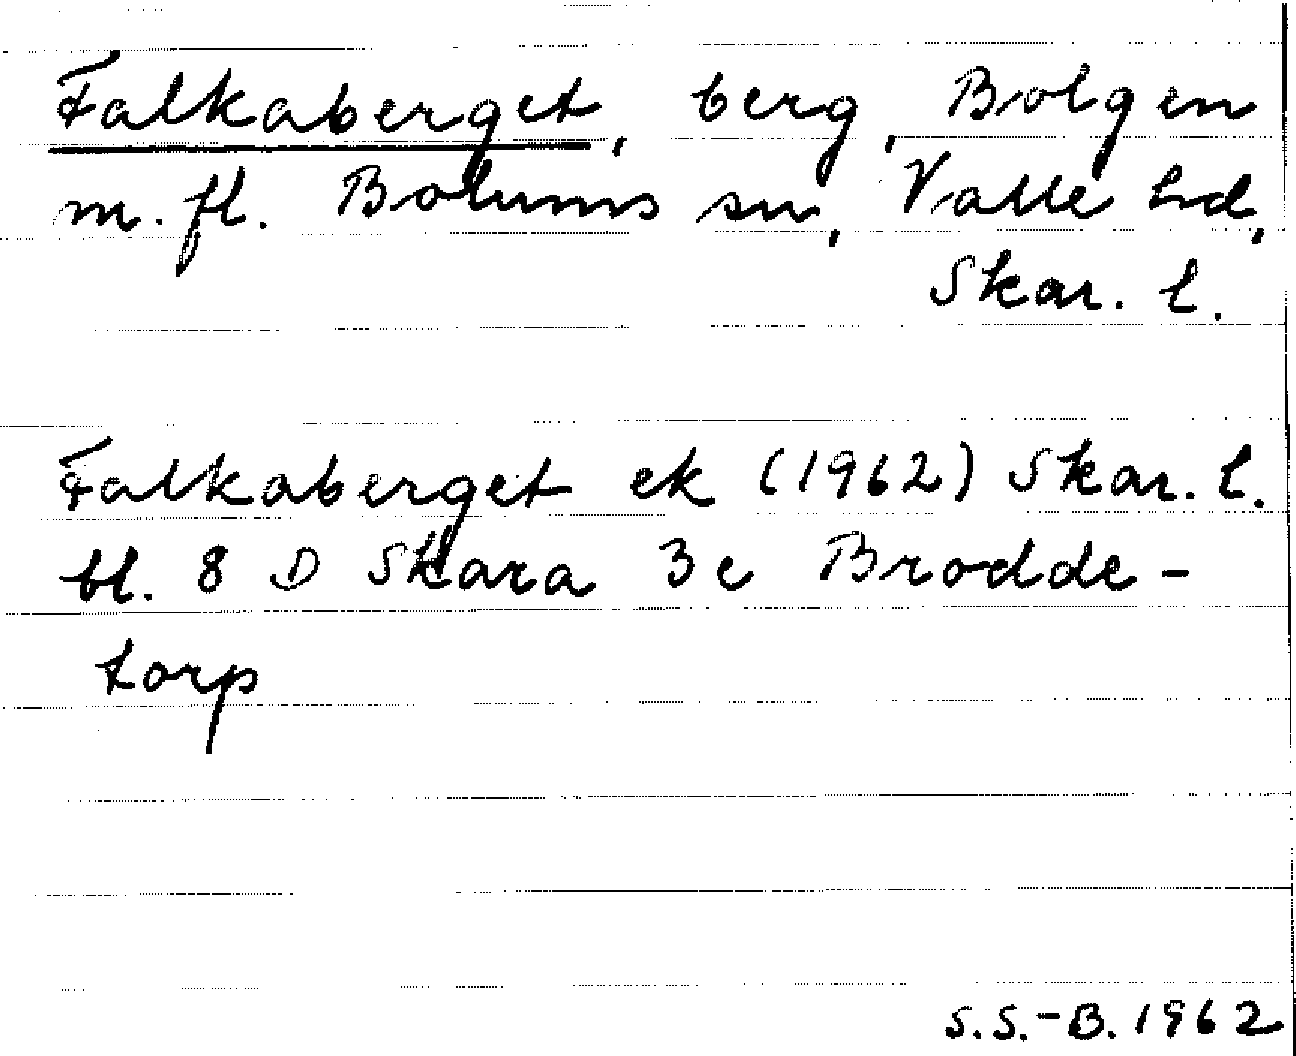 Falkaberget, berg, Bolgen
m. fl. Bolums sn, Valle hd,
Skar. l.
Falkaberget ek (1962) Skar. l.
bl. 8 D Skara 3e Brodde-
torp
S.S.-B. 1962